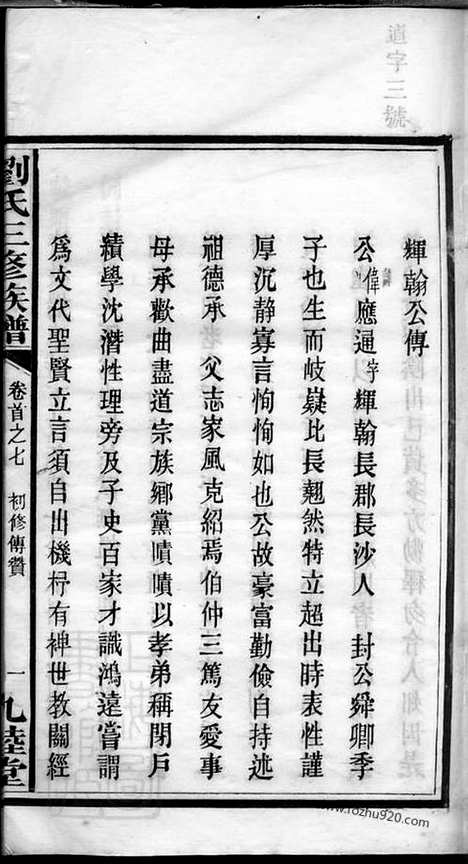 道字三號
輝翰公傳
公諱偉應通字輝翰長郡長沙人 封公舜卿季
子也生而岐嶷比長翹然特立超出時表性謹
厚沉静寡言恂恂如也公故豪富勤儉自持述
祖德承 父志家風克紹焉伯仲三篤友愛事
母承歡曲盡道宗族鄉黨嘖嘖以孝弟稱閉戶
績學沈潛性理旁及子史百家才識鴻遠嘗謂
爲文代聖賢立言須自出機杼有裨世教關經
劉氏三修族譜
卷首之七 初修傳贊
一
九睦堂
www.fozhu920.com